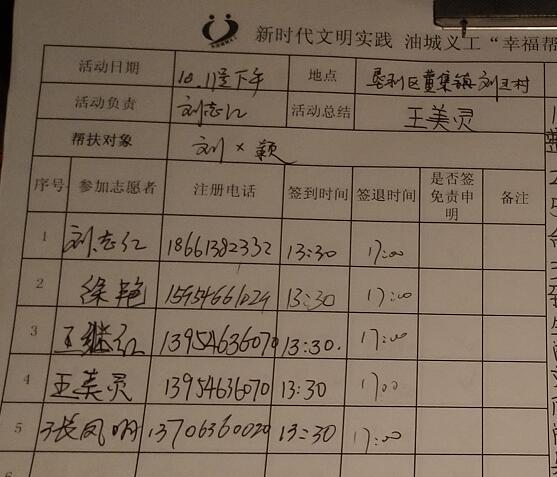 新时代文明实践 油城义工“幸福帮
活动日期 10.11星下午 地点 垦利区董集镇刘王村
活动负责 刘志红 活动总结 王美灵
帮扶对象 刘×颖
序号 参加志愿者 注册电话 签到时间 签退时间 是否签免责申明 备注
1 刘志红 18661382332 13:30 17:00
2 徐艳 15954661024 13:30 17:00
3 王继红 13954636070 13:30. 17:00
4 王美灵 13954636070 13:30 17:00
5 张凤 13706360020 13:30 17:00